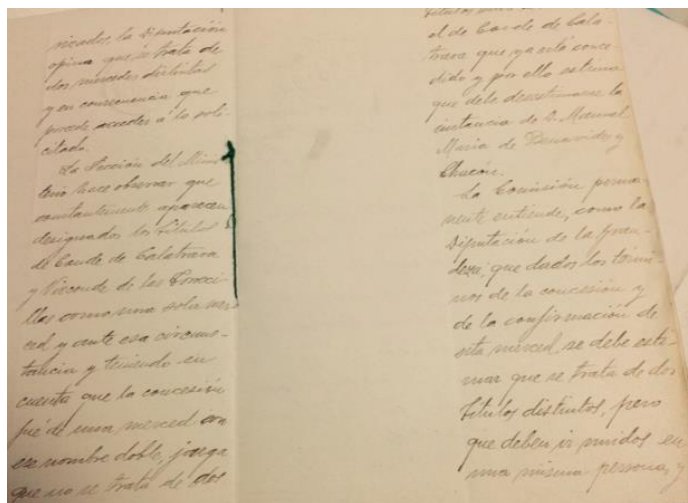 nizados, la Diputación
opina que se trata de
dos mercedes distintas
y en consecuencia que
procede acceder á lo soli-
citado.
La Sección del Minis
terio hace observar que
constantemente aparecen
designados los títulos
de Conde de Calatrava
y Vizconde de las Torreci-
llas como una sola mer
ced y ante esa circuns-
tancia y teniendo en
cuenta que la concesión
fué de una merced con
ese nombre doble, juzga
que no se trata de dos
títulos
el de Conde de Cala-
trava que ya está conce
dido y por ello estima
que debe desestimarse la
instancia de D. Manuel
María de Benavides y
Chacón.
La Comisión perma-
nente entiende, como la
Diputación de la Gran-
deza, que dados los térmi-
nos de la concesión y
de la confirmación de
esta merced, se debe esti-
mar que se trata de dos
títulos distintos, pero
que deben ir unidos en
una misma persona, y